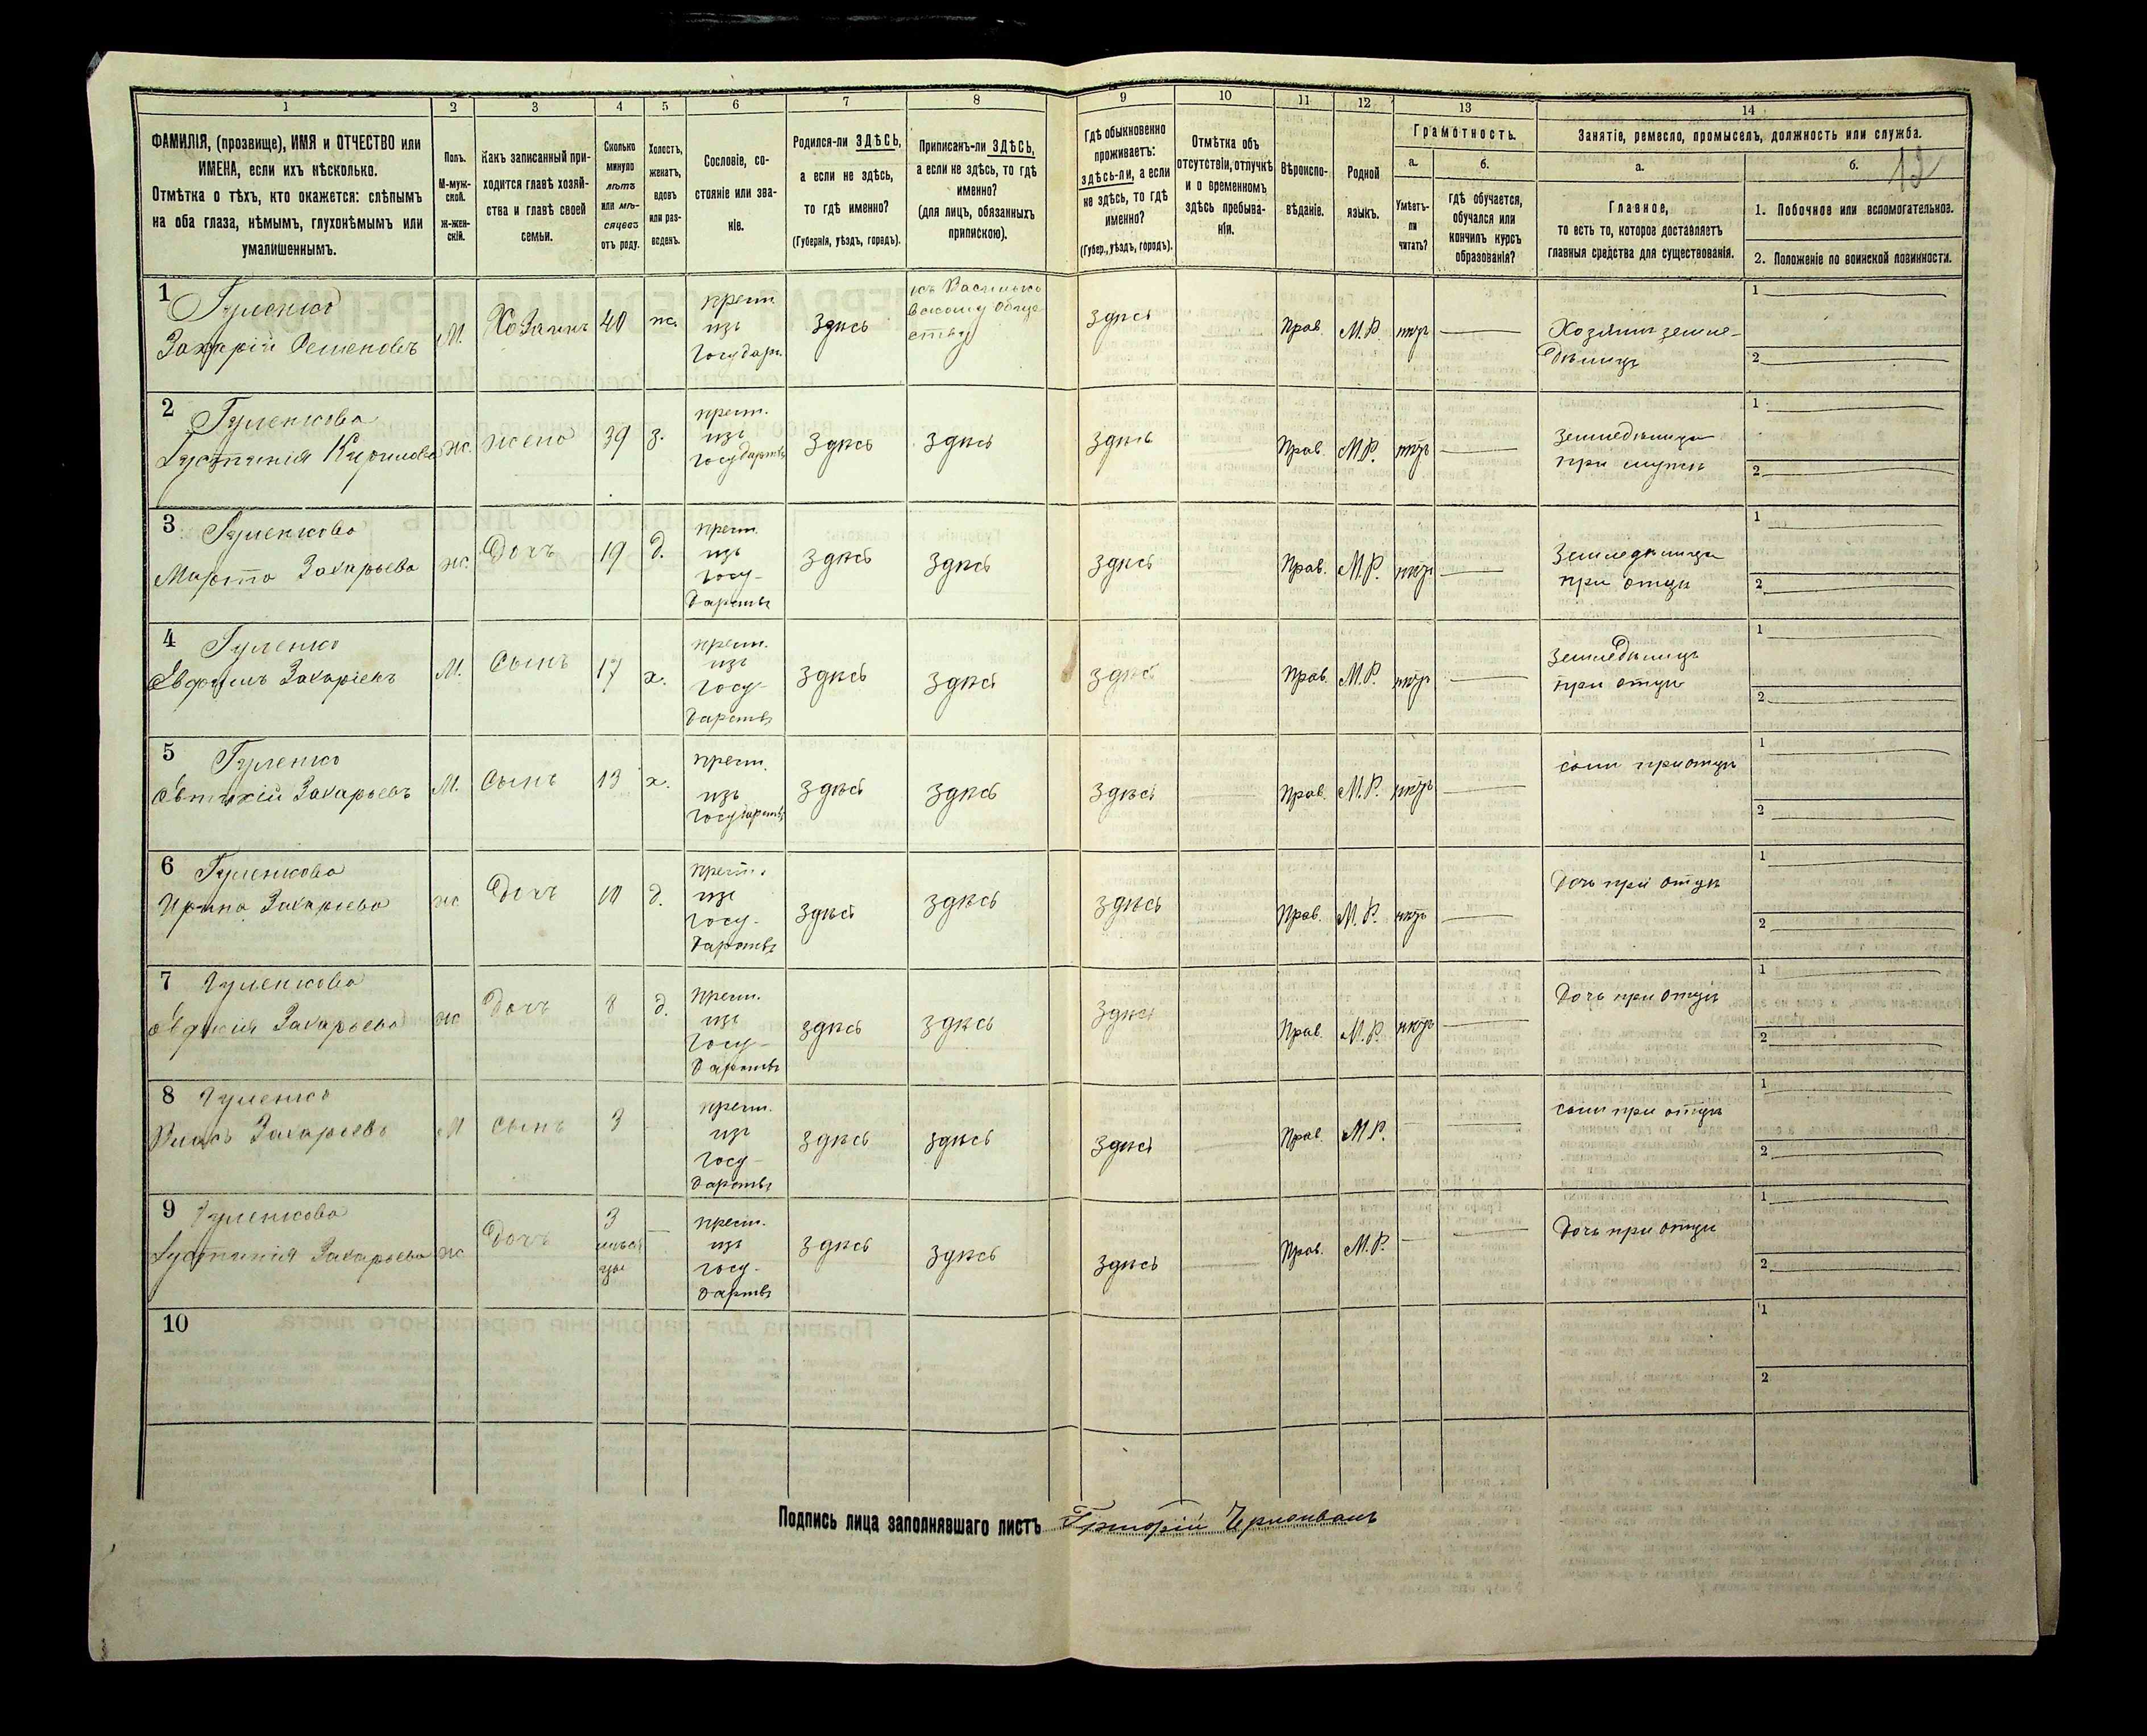 1 2 3 4 5 6 7 8 9 10 11 12 13 14
ФАМИЛІЯ, (прозвище), ИМЯ и ОТЧЕСТВО или
ИМЕНА, если ихъ нѣсколько.
Отмѣтка о тѣхъ, кто окажется: слѣпымъ
на оба глаза, нѣмымъ, глухонѣмымъ или
умалишеннымъ.
Полъ.
М-муж-
ской.
Ж-жен-
скій.
Какъ записанный при-
ходится главѣ хозяй-
ства и главѣ своей
семьи.
Сколько
минуло
лѣтъ
или мѣ-
сяцевъ
отъ роду.
Холостъ,
женатъ,
вдовъ
или раз-
веденъ.
Сословіе, со-
стояніе или зва-
ніе.
Родился-ли ЗДѢСЬ,
а если не здѣсь,
то гдѣ именно?
(Губернія, уѣздъ, городъ).
Приписанъ-ли ЗДѢСЬ,
а если не здѣсь, то гдѣ
именно?
(для лицъ, обязанныхъ
припискою).
Гдѣ обыкновенно
проживаетъ:
здѣсь-ли, а если
не здѣсь, то гдѣ
именно?
(Губер., уѣздъ, городъ).
Отмѣтка объ
отсутствіи, отлучкѣ
и о временномъ
здѣсь пребыва-
ніи.
Вѣроиспо-
вѣданіе.
Родной
языкъ.
Грамотность.
а.
Умѣетъ-
ли
читать?
б.
гдѣ обучается,
обучался или
кончилъ курсъ
образованія?
Занятіе, ремесло, промыселъ, должность или служба.
а.
Главное,
то есть то, которое доставляетъ
главныя средства для существованія.
б.
12
1. Побочное или вспомогательное.
2. Положеніе по воинской повинности.
1 Гуленко
Захарій Семеновъ
М. Хозяинъ 40 ж.
крест.
изъ
Государ.
здѣсь
къ Василько
вскому обще
ству
здѣсь Прав. М.Р. нѣтъ
Хозяинъ земле-
дѣлецъ
1
2
2 Гуленкова
Густинія Кирилова
ж. жена 39 з.
крест.
изъ
государств
здѣсь здѣсь здѣсь Прав. М.Р. нѣтъ
земледѣлица
при мужѣ
1
2
3 Гуленкова
Марфа Захарьева
ж. Дочь 19 д.
крест.
изъ
госу-
дарств
здѣсь здѣсь здѣсь Прав. М.Р. нѣтъ
Земледѣлица
при отцѣ
1
2
4 Гуленко
Евдокимъ Захаріевъ
М. Сынъ 17 х.
крест.
изъ
госу-
дарств
здѣсь здѣсь здѣсь Прав. М.Р. нѣтъ
земледѣлецъ
при отцѣ
1
2
5 Гуленко
Евтихій Захарьевъ
М. Сынъ 13 х.
крест.
изъ
государств
здѣсь здѣсь здѣсь Прав. М.Р. нѣтъ
сынъ при отцѣ
1
2
6 Гуленкова
Ирина Захарьева
ж Дочь 10 д.
крест.
изъ
госу-
дарств
здѣсь здѣсь здѣсь Прав. М.Р. нѣтъ
Дочь при отцѣ
1
2
7 Гуленкова
Евдокія Захарьева
ж Дочь 8 д.
крест.
изъ
госу-
дарств
здѣсь здѣсь здѣсь Прав. М.Р. нѣтъ
Дочь при отцѣ
1
2
8 Гуленко
Власъ Захарьевъ
М Сынъ 3
крест.
изъ
госу-
дарств
здѣсь здѣсь здѣсь Прав. М.Р.
сынъ при отцѣ
1
2
9 Гуленкова
Густинія Захарьева
ж Дочь
3
мѣся
цы
крест.
изъ
госу-
дарств
здѣсь здѣсь здѣсь Прав. М.Р.
Дочь при отцѣ
1
2
10
1
2
Подпись лица заполнявшаго листъ Григорій